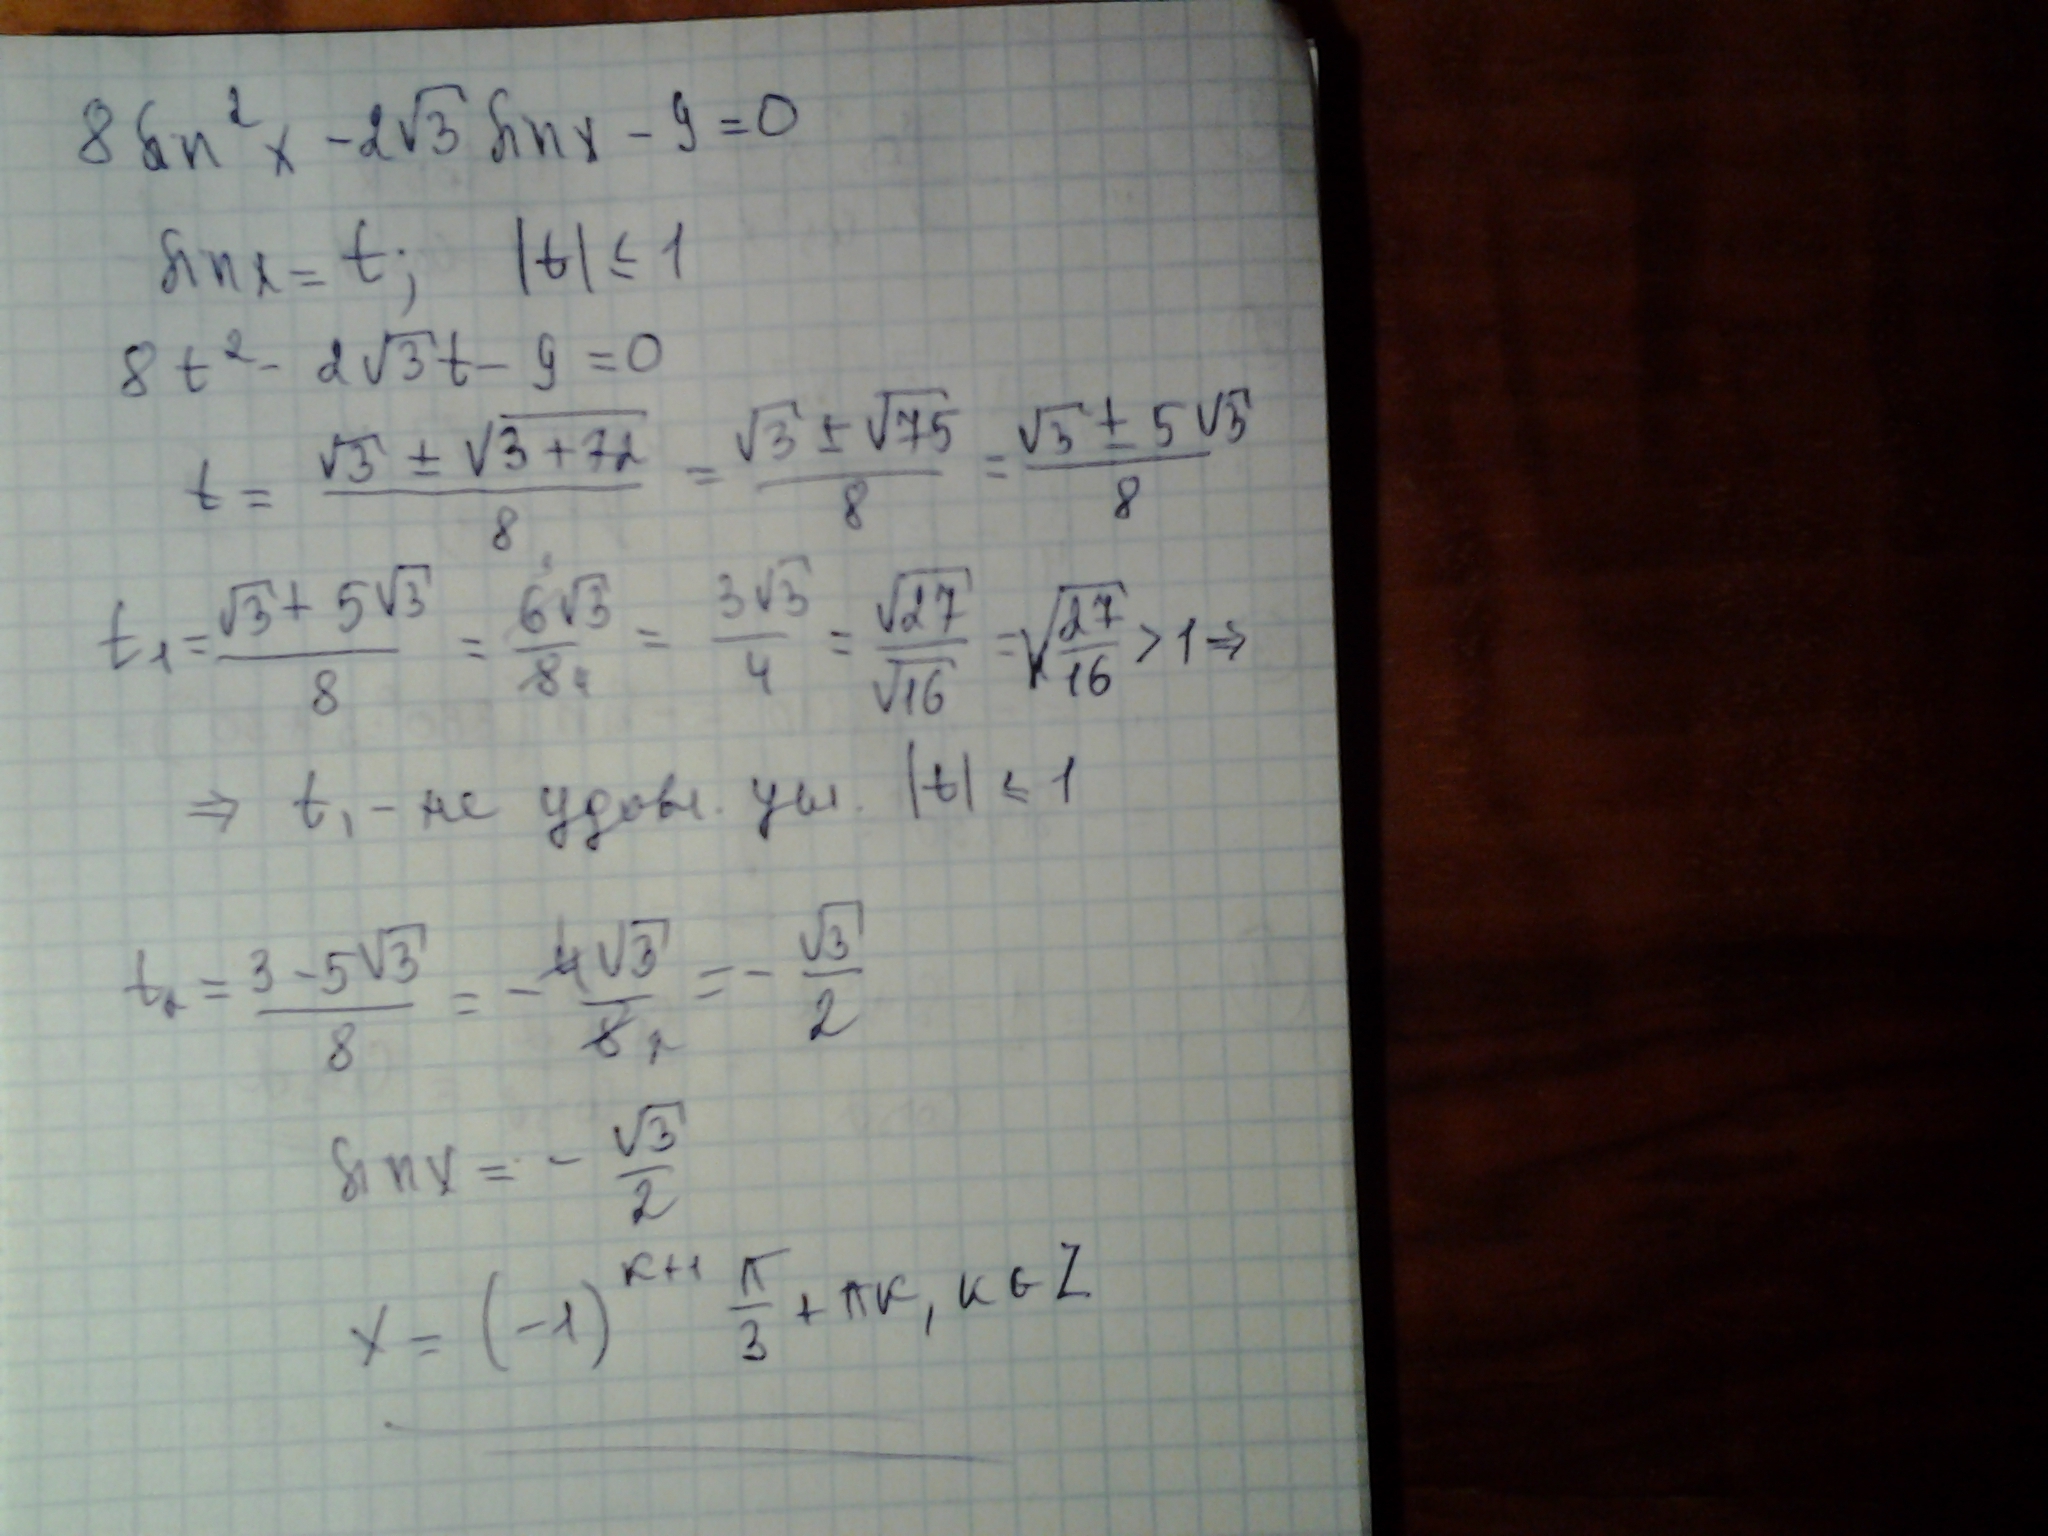 8 sin² x - 2√3 sin x - 9 = 0
sin x = t; |t| ≤ 1
8t² - 2√3 t - 9 = 0
t = (√3 ± √(3+72))/8 = (√3 ± √75)/8 = (√3 ± 5√3)/8
t₁ = (√3 + 5√3)/8 = 6√3/8 4 = 3√3/4 = √27/√16 = √(27/16) > 1 ⇒
⇒ t₁ - не удовл. усл. |t| ≤ 1
t₂ = (3 - 5√3)/8 = - 4√3/8 2 = - √3/2
sin x = - √3/2
x = (-1)^(к+1) π/3 + πк, к ∈ Z